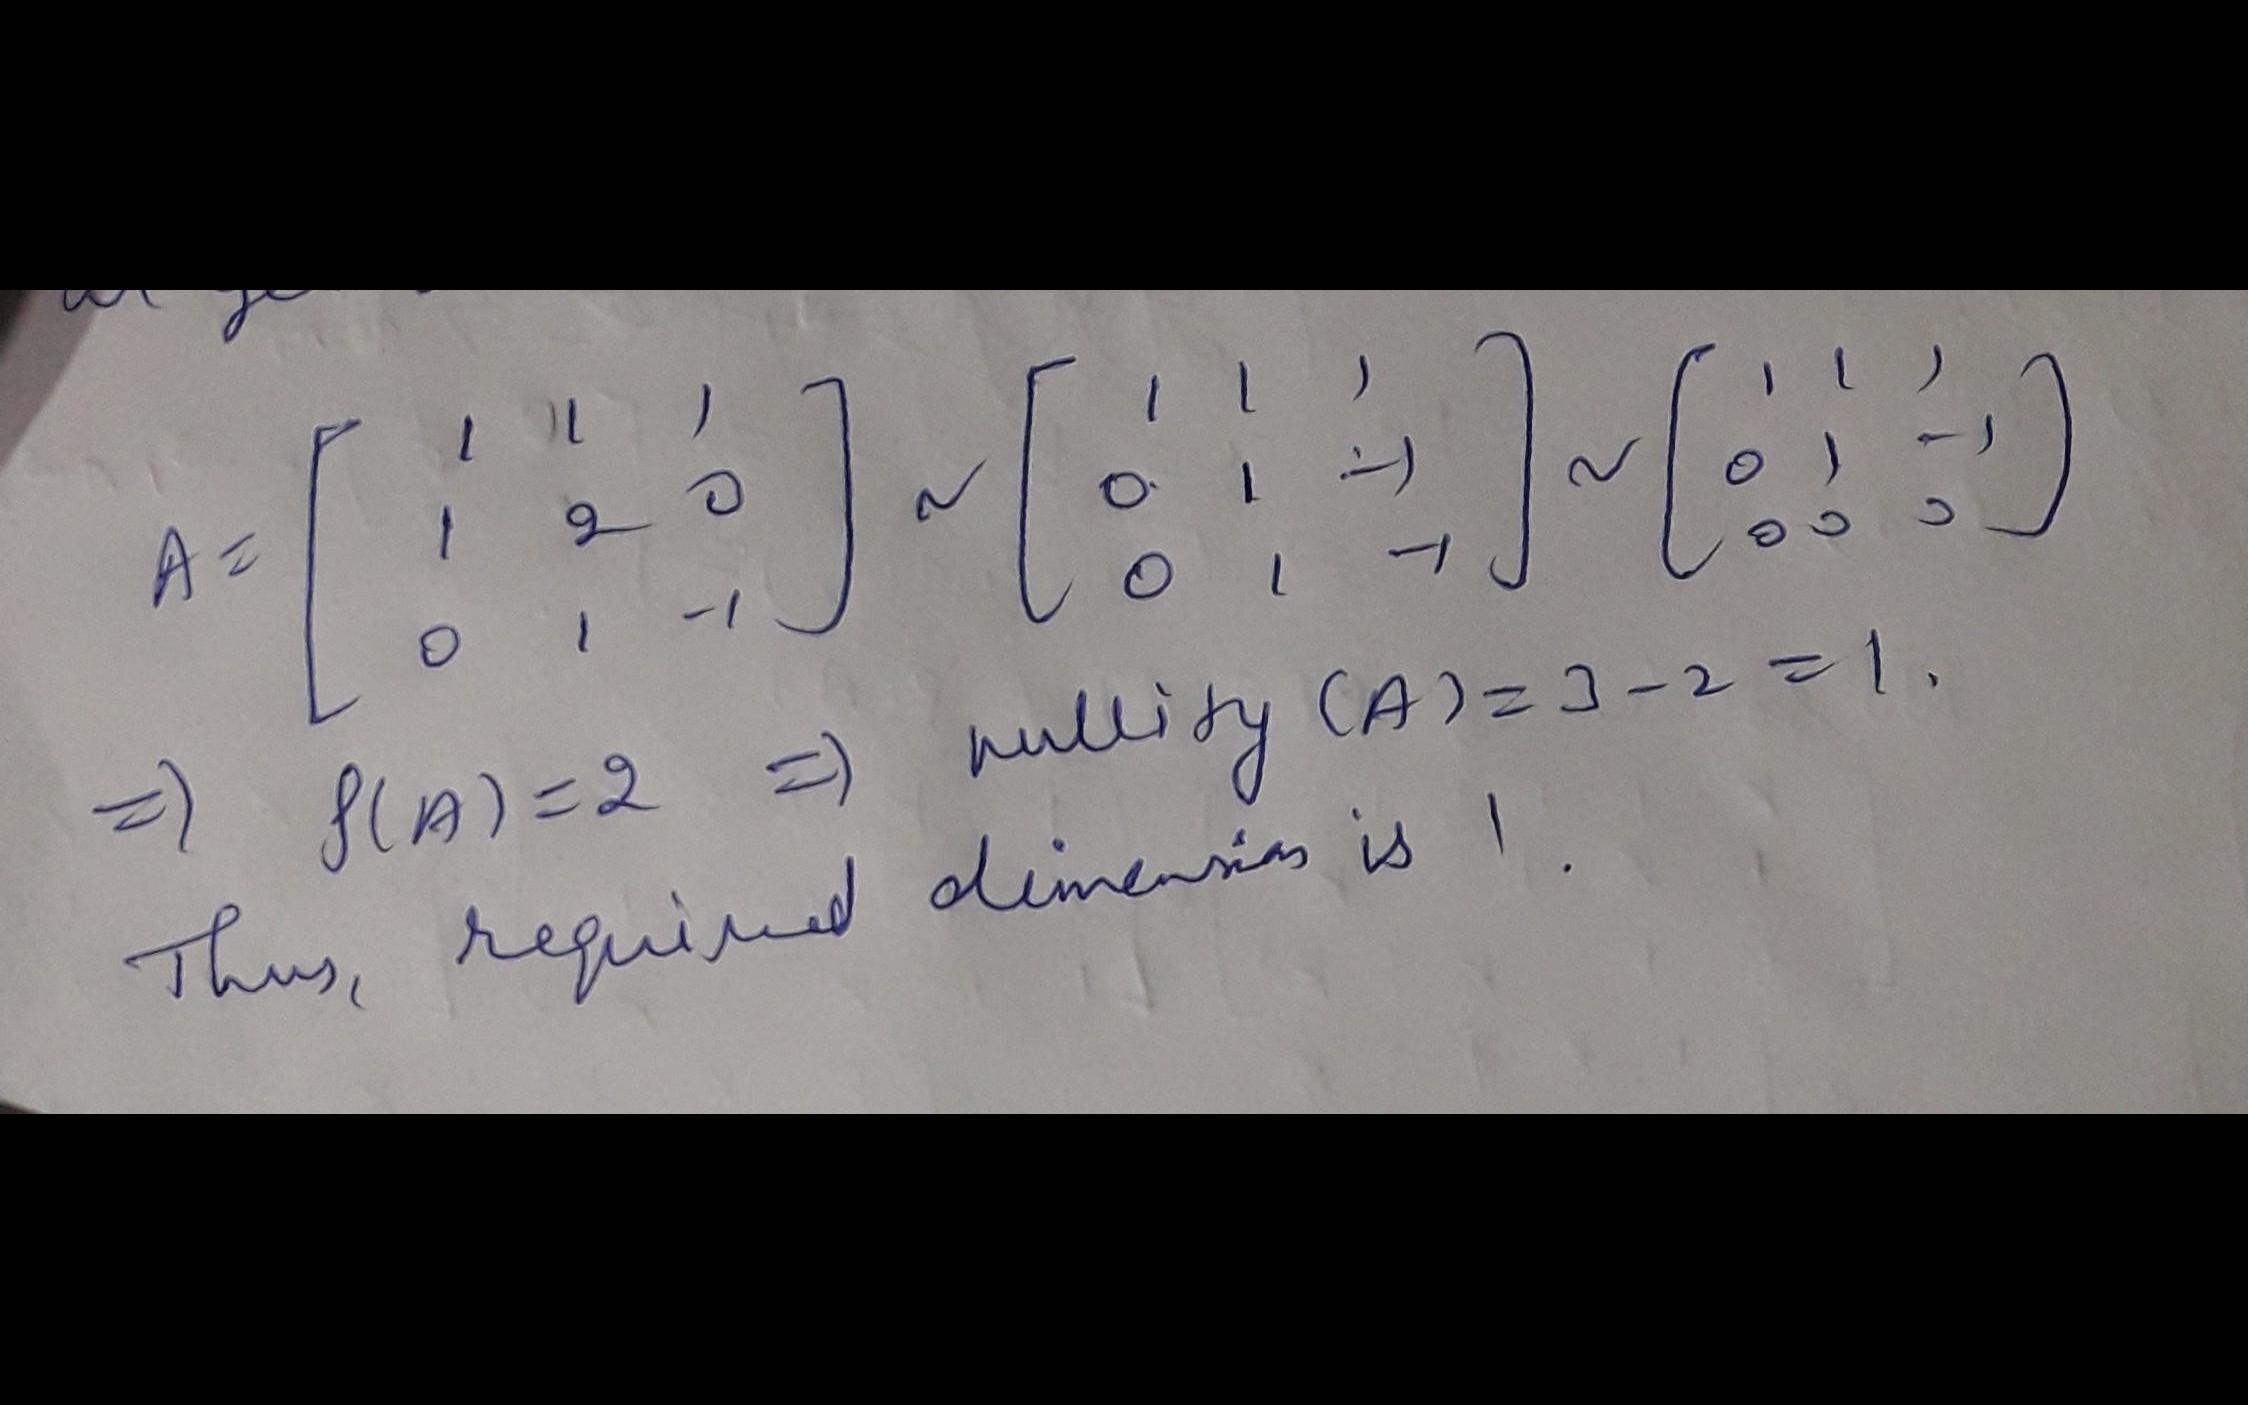 A = [ 1 1 1 ] ~ [ 1 1 1 ] ~ [ 1 1 1 ]
[ 1 2 0 ] [ 0 1 -1 ] [ 0 1 -1 ]
[ 0 1 -1 ] [ 0 1 -1 ] [ 0 0 0 ]
⇒ ρ(A) = 2 ⇒ nullity (A) = 3 - 2 = 1.
Thus, required dimension is 1.